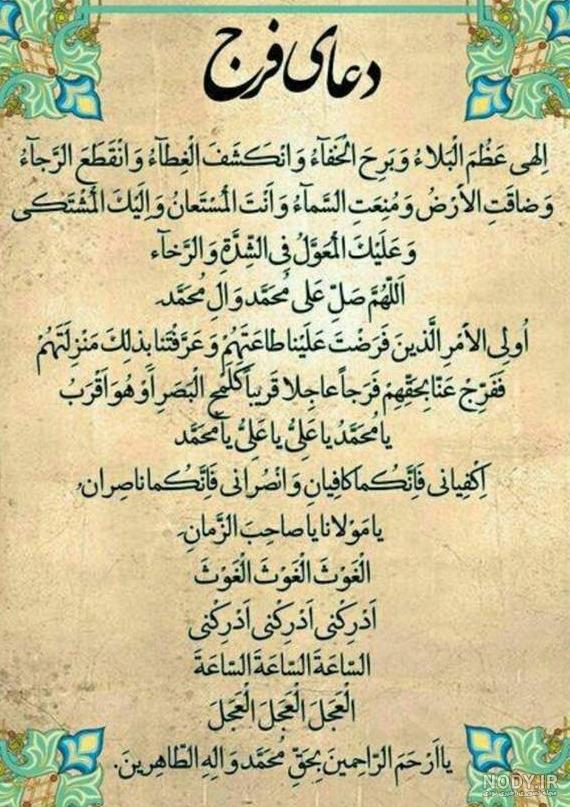 دعای فرج
اِلهی عَظُمَ الْبَلاءُ وَ بَرِحَ الْخَفآءُ وَ انْکَشَفَ الْغِطآءُ وَ انْقَطَعَ الرَّجآءُ
وَ ضاقَتِ الاَرْضُ وَ مُنِعَتِ السَّمآءُ وَ اَنْتَ الْمُسْتَعانُ وَ اِلَیْکَ الْمُشْتَکی
وَ عَلَیْکَ الْمُعَوَّلُ فِی الشِّدَّةِ وَ الرَّخآء
اَللّهُمَّ صَلِّ عَلی مُحَمَّد وَ الِ مُحَمَّد.
اُولِی الاَمْرِ الَّذینَ فَرَضْتَ عَلَیْنا طاعَتَهُمْ وَ عَرَّفْتَنا بِذلِکَ مَنْزِلَتَهُمْ
فَفَرِّجْ عَنّا بِحَقِّهِمْ فَرَجاً عاجِلا قَریباً کَلَمْحِ الْبَصَرِ اَوْ هُوَ اَقْرَبُ
یا مُحَمَّدُ یا عَلِیُّ یا عَلِیُّ یا مُحَمَّد
اِکْفِیانی فَاِنَّکُما کافِیانِ وَ انْصُرانی فَاِنَّکُما ناصِرانِ.
یا مَوْلانا یا صاحِبَ الزَّمانِ.
الْغَوْثَ الْغَوْثَ الْغَوْثَ
اَدْرِکْنی اَدْرِکْنی اَدْرِکْنی
السّاعَةَ السّاعَةَ السّاعَةَ
الْعَجَلَ الْعَجَلَ الْعَجَلَ
یا اَرْحَمَ الرّاحِمینَ بِحَقِّ مُحَمَّد وَ الِهِ الطّاهِرینَ.
NODY.IR